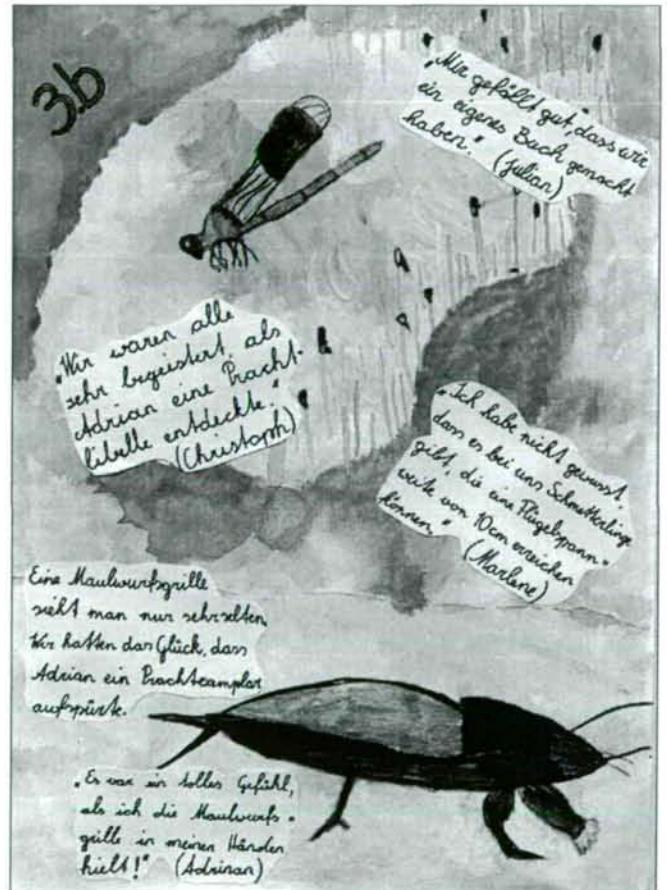 3.b
„Mir gefällt gut, dass wir
ein eigenes Buch gemacht
haben." (Julian)
„Wir waren alle
sehr begeistert, als
Adrian eine Pracht-
libelle entdeckte."
(Christoph)
„Ich habe nicht gewusst,
dass es bei uns Schmetterlinge
gibt, die eine Flügelspann-
weite von 10cm erreichen
können."
(Marlene)
Eine Maulwurfsgrille
sieht man nur sehr selten.
Wir hatten das Glück, dass
Adrian ein Prachtexemplar
aufspürte.
„Es war ein tolles Gefühl,
als ich die Maulwurfs-
grille in meinen Händen
hielt!" (Adrinan)